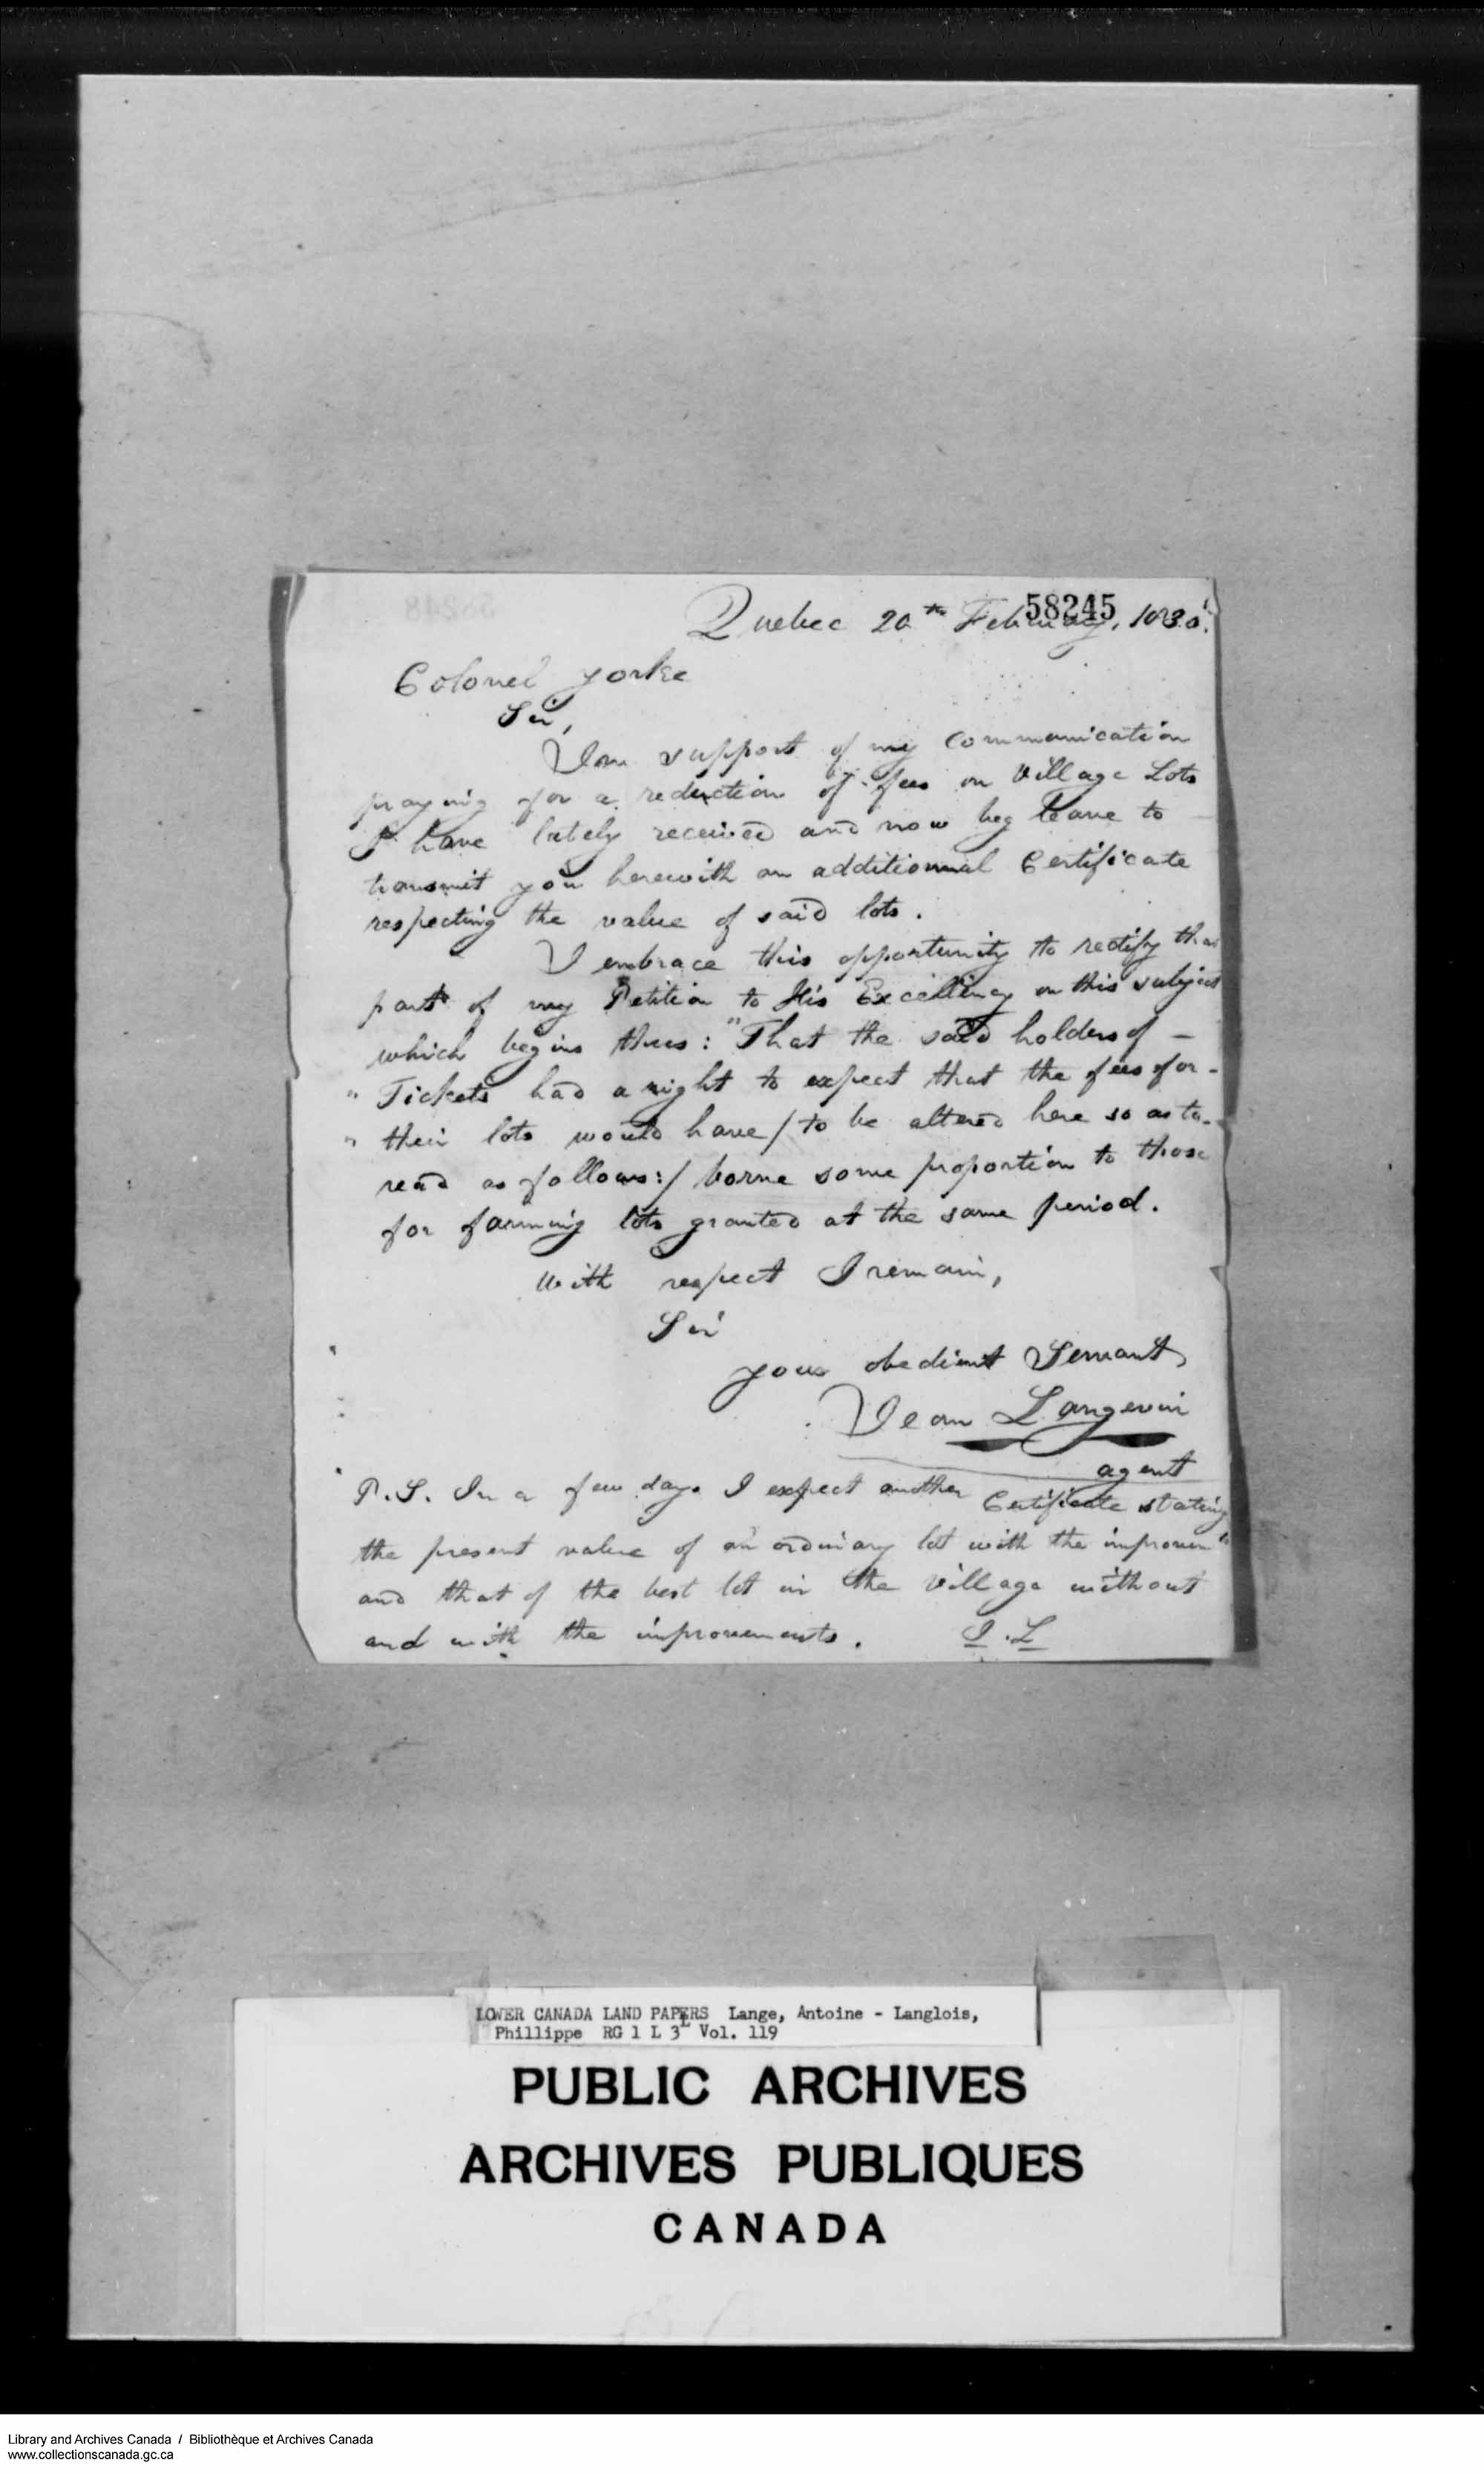 58245
Quebec 20th February, 1830.
Colonel Yorke
Sir,
In support of my Communication
praying for a reduction of fees on Village Lots
I have lately received and now beg leave to
transmit you herewith an additionnal Certificate
respecting the value of said lots.
I embrace this opportunity to rectify that
part of my Petition to His Excellency on this subject
which begins thus: "That the said holders of —
" Tickets had a right to expect that the fees for -
" their lots would have / to be altered here so as to -
read as follows: / borne some proportion to those
for farming lots granted at the same period.
With respect I remain,
Sir
your obedient Servant
Jean Langevin
agent
P.S. In a few days I expect another Certificate stating
the present value of an ordinary lot with the improvemts
and that of the best lot in the Village without
and with the improvements. J.L
LOWER CANADA LAND PAPERS Lange, Antoine - Langlois,
Phillippe RG 1 L 3L Vol. 119
PUBLIC ARCHIVES
ARCHIVES PUBLIQUES
CANADA
Library and Archives Canada / Bibliothèque et Archives Canada
www.collectionscanada.gc.ca